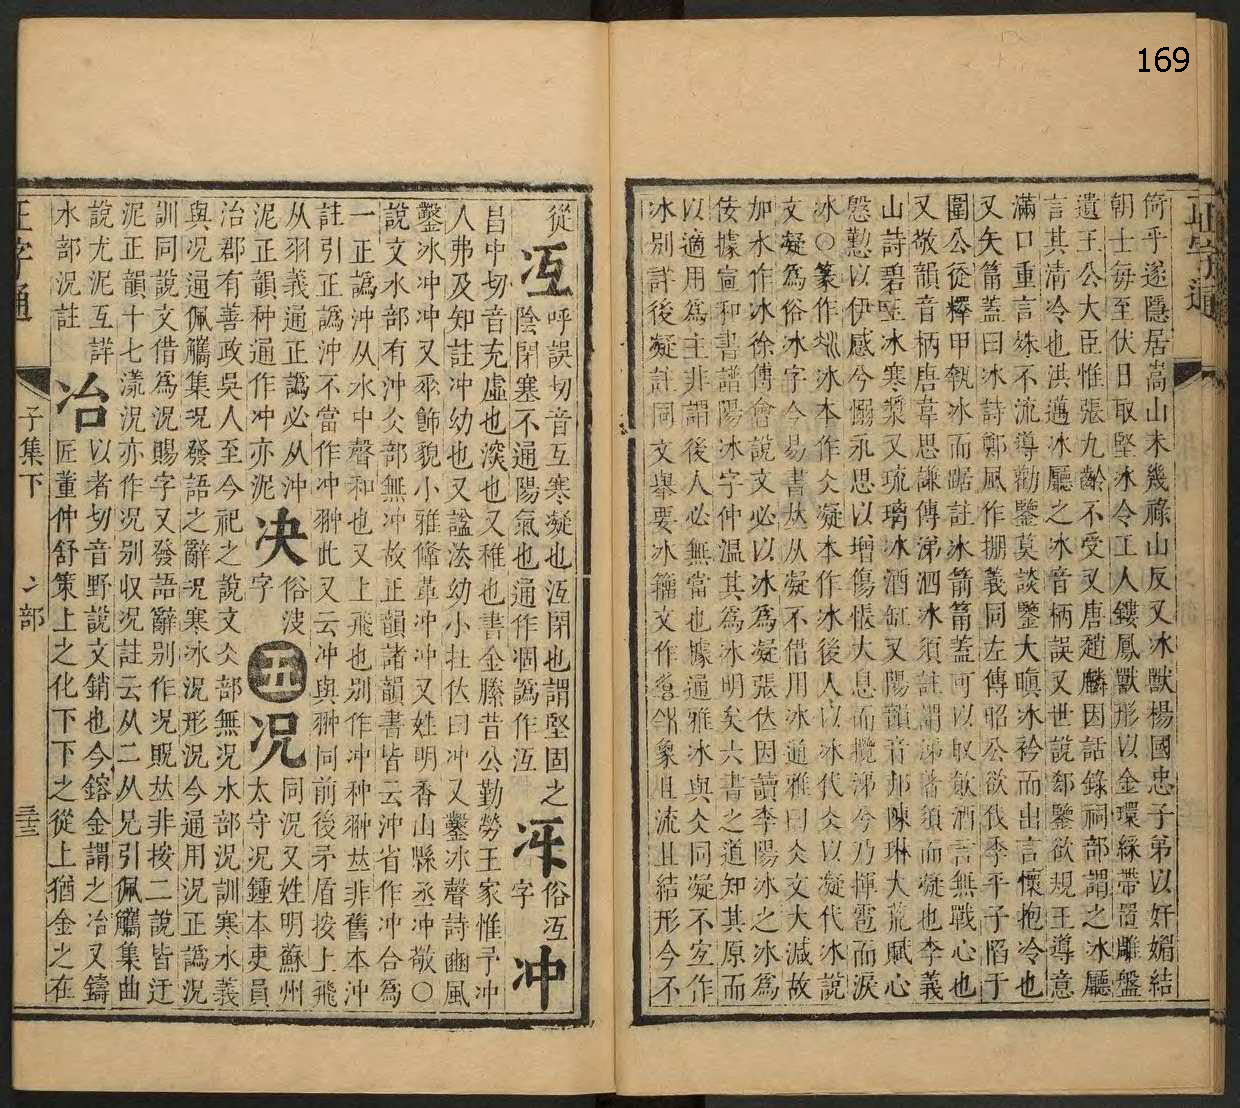 169
正字通
筒乎遂隱居嵩山未幾祿山反又冰獸楊國忠子弟以奸媚結
朝士每至伏日取堅冰令工人鏤鳳獸形以金環綵帶置雕盤
遺王公大臣惟張九齡不受又唐趙麟因話錄祠部謂之冰廳
言其清冷也洪邁冰廳之冰音柄誤又世說郗鑒欲規王導意
滿口重言姝不流導勸鑒莫談鑒大瞋冰衿而出言懷抱冷也
又矢筩蓋曰冰詩鄭風作掤義同左傳昭公欲伐季平子陷于
圍公徒釋甲執冰而踞註冰箭筩蓋可以取飲酒言無戰心也
又敬韻音柄唐韋思謙傳涕泗冰須註謂涕著須而凝也李義
山詩碧玉冰寒漿又琉璃冰酒缸又陽韻音邦陳琳大荒賦心
慇懃以伊感兮慍永思以增傷悵大息而攬涕兮乃揮雹而淚
冰〇篆作冰本作仌凝本作冰後人以冰代仌以凝代冰說
文凝爲俗冰字今易書从凝不借用冰通雅曰仌文大減故
加水作冰徐傅會說文必以冰爲凝張佽因讀李陽冰之冰爲
仌據宣和書譜陽冰字仲溫其爲冰明矣六書之道知其原而
以適用爲主非謂後人必無當也據通雅冰與仌同凝不宜作
冰別詳後凝註同文舉要冰籀文作象且流且結形今不
從 冱 呼誤切音互寒凝也冱閉也謂堅固之
陰閉塞不通陽氣也通作涸譌作沍 冸 俗冱字 冲
昌中切音充虛也深也又稚也書金縢昔公勤勞王家惟予冲
人弗及知註冲幼也又諡法幼小在位曰冲又鑿冰聲詩豳風
鑿冰冲冲又垂飾貌小雅鞗革冲冲又姓明香山縣丞冲敬〇
說文水部有沖仌部無冲故正韻諸韻書皆云沖省作冲合爲
一正譌沖从水中聲和也又上飛也别作冲种翀𠀤非舊本沖
註引正譌沖不當作冲翀此又云冲與翀同前後矛盾按上飛
从羽義通正譌必从沖 决 俗決字 五 况 同況又姓明蘇州
泥正韻种通作冲亦泥 太守况鍾本吏員
治郡有善政吳人至今祀之說文仌部無况水部況訓寒水義
與况通佩觿集况發語之辭况寒冰況形況今通用况正譌況
訓同說文借爲况賜字又發語辭别作况貺𠀤非按二說皆迂
泥正韻十七漾况亦作況别収况註云从二从兄引佩觿集曲
說尤泥互詳 冶 以者切音野說文銷也今鎔金謂之冶又鑄
水部況註 匠董仲舒策上之化下下之從上猶金之在
正字通
子集下
冫部
三十三